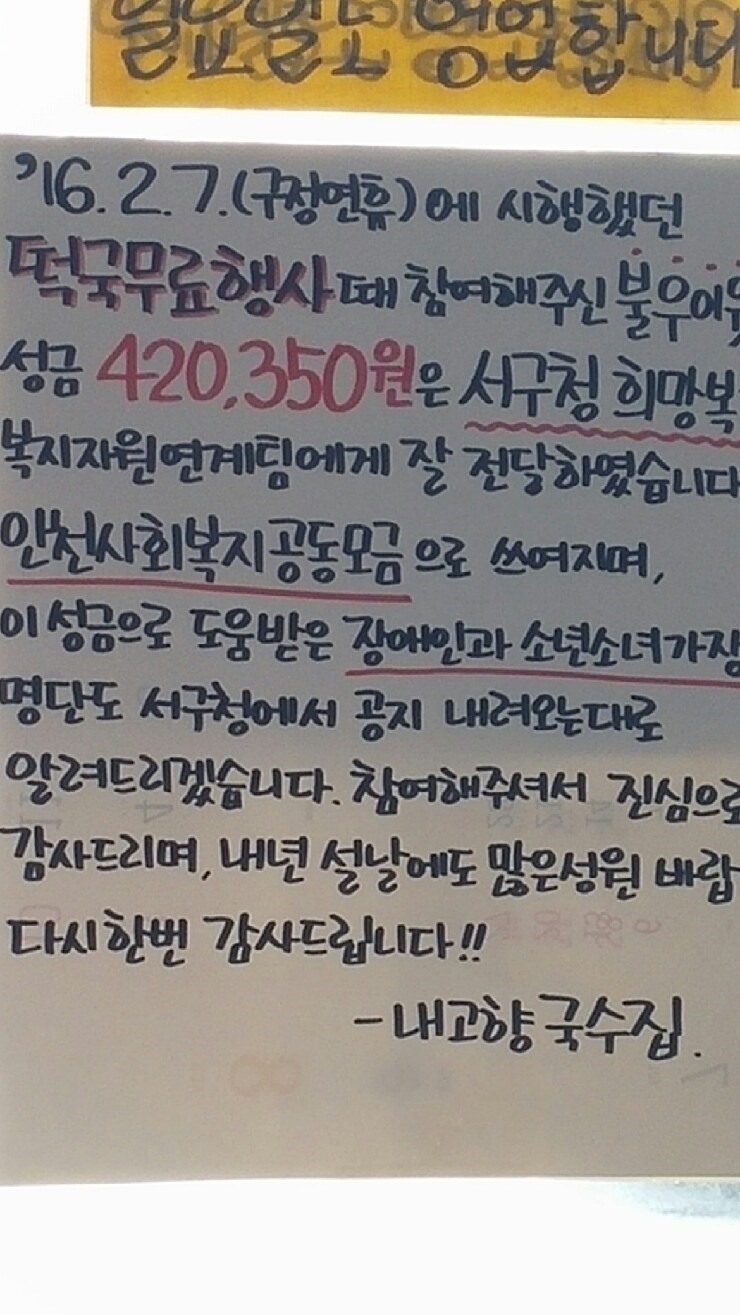 일요일도 영업합니다
'16. 2. 7. (구정연휴)에 시행했던
떡국무료행사 때 참여해주신 불우이웃
성금 420,350원은 서구청 희망복
복지자원연계팀에게 잘 전달하였습니다
인천사회복지공동모금으로 쓰여지며,
이 성금으로 도움받은 장애인과 소년소녀가장
명단도 서구청에서 공지 내려오는대로
알려드리겠습니다. 참여해주셔서 진심으로
감사드리며, 내년 설날에도 많은성원 바랍
다시한번 감사드립니다!!
- 내고향국수집.